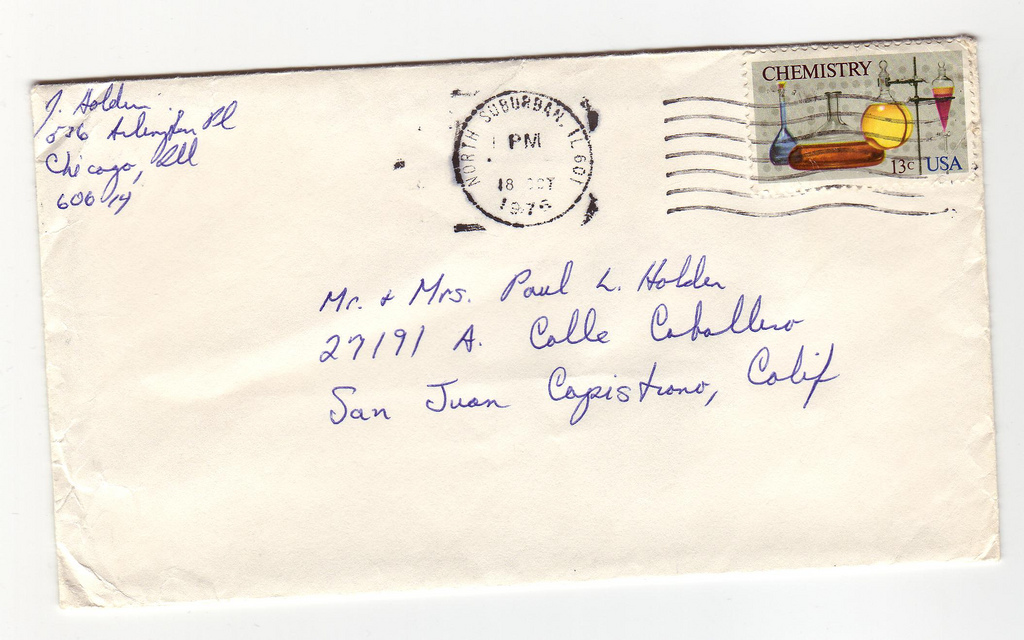 J. Holden
536 Arlington Pl
Chicago, Ill
60614
NORTH SUBURBAN, IL 601
PM
18 OCT
1976
CHEMISTRY
13c USA
Mr. + Mrs. Paul L. Holden
27191 A. Calle Caballero
San Juan Capistrano, Calif